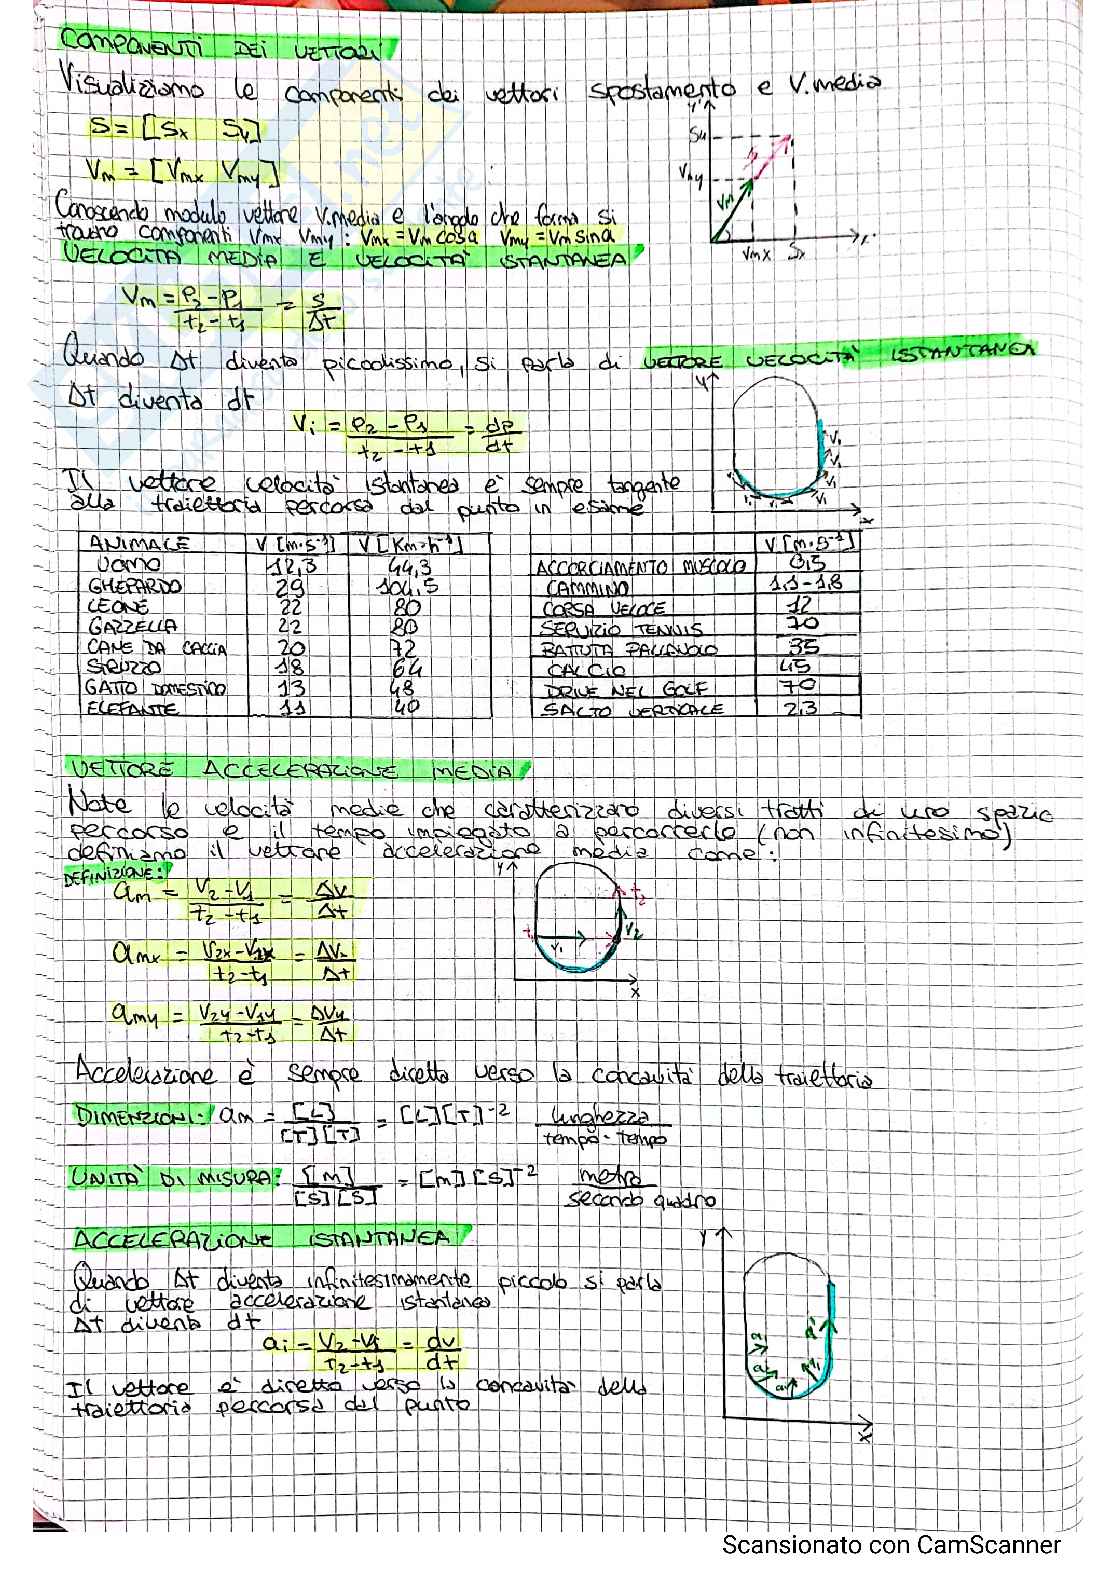 COMPONENTI DEI VETTORI
Visualizziamo le componenti dei vettori spostamento e V.media
S = [Sx Sy]
Vm = [Vmx Vmy]
Conoscendo modulo vettore V.media e l'angolo che forma si
trovano componenti Vmx Vmy : Vmx = Vm cosα Vmy = Vm sinα
Y
Sy
Vmy
Vm
S
Vmx Sx
X
VELOCITÀ MEDIA E VELOCITÀ ISTANTANEA
Vm = P2 - P1 / t2 - t1 = S / Δt
Quando Δt diventa piccolissimo, si parla di VETTORE VELOCITÀ ISTANTANEA
Δt diventa dt
Vi = P2 - P1 / t2 - t1 = dp / dt
Il vettore velocità istantanea è sempre tangente
alla traiettoria percorsa dal punto in esame
Y
Vi
Vi
Vi
Vi
X
ANIMALE V [m·s⁻¹] V [Km·h⁻¹]
UOMO 12,3 44,3
GHEPARDO 29 104,5
LEONE 22 80
GAZZELLA 22 80
CANE DA CACCIA 20 72
STRUZZO 18 64
GATTO DOMESTICO 13 48
ELEFANTE 11 40
V [m·s⁻¹]
ACCORCIAMENTO MUSCOLO 0,5
CAMMINO 1,1-1,8
CORSA VELOCE 12
SERVIZIO TENNIS 70
BATTUTA PALLAVOLO 35
CALCIO 45
DRIVE NEL GOLF 70
SALTO VERTICALE 2,3
VETTORE ACCELERAZIONE MEDIA
Note le velocità medie che caratterizzano diversi tratti di uno spazio
percorso e il tempo impiegato a percorrerlo (non infinitesimo)
definiamo il vettrore accelerazione media come:
DEFINIZIONE:
am = V2 - V1 / t2 - t1 = ΔV / Δt
amx = V2x - V1x / t2 - t1 = ΔVx / Δt
amy = V2y - V1y / t2 - t1 = ΔVy / Δt
Y
t2
t1
V1
V2
X
Accelerazione è sempre diretta verso la concavità della traiettoria
DIMENZIONI: am = [L] / [T][T] = [L][T]⁻² lunghezza / tempo · tempo
UNITÀ DI MISURA: [M] / [S][S] = [m][S]⁻² metro / secondo quadro
ACCELERAZIONE ISTANTANEA
Quando Δt diventa infinitesimamente piccolo si parla
di vettore accelerazione istantanea
Δt diventa dt
ai = V2 - V1 / t2 - t1 = dv / dt
Il vettore è diretto verso la concavità della
traiettoria percorsa dal punto
Y
ai
ai
ai
ai
X
Scansionato con CamScanner